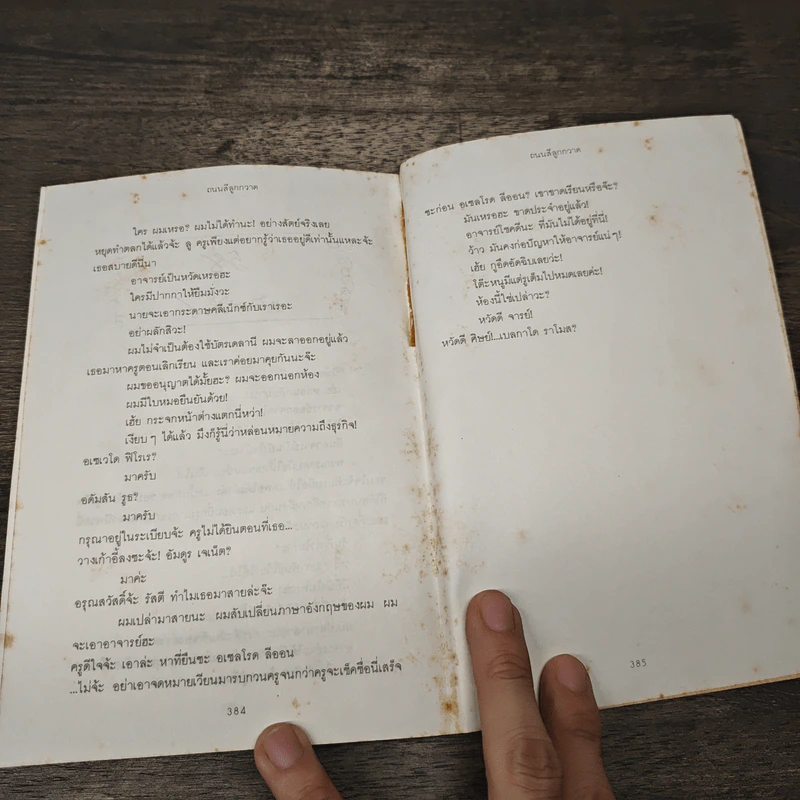 ถนนสีลูกกวาด
ใคร ผมเหรอ? ผมไม่ได้ทำนะ! อย่างสัตย์จริงเลย
หยุดทำตลกได้แล้วจ้ะ ลู ครูเพียงแต่อยากรู้ว่าเธออยู่ดีเท่านั้นแหละจ้ะ
เธอสบายดีนี่นา
อาจารย์เป็นหวัดเหรอฮะ
ใครมีปากกาให้ยืมมั่งวะ
นายจะเอากระดาษคลีเน็กซ์กับเราเรอะ
อย่าผลักสิวะ!
ผมไม่จำเป็นต้องใช้บัตรเดลานี ผมจะลาออกอยู่แล้ว
เธอมาหาครูตอนเลิกเรียน และเราค่อยมาคุยกันนะจ๊ะ
ผมขออนุญาตได้มั้ยฮะ? ผมจะออกนอกห้อง
ผมมีใบหมอยืนยันด้วย!
เฮ้ย กระจกหน้าต่างแตกนี่หว่า!
เงียบๆ ได้แล้ว มึงก็รู้นี่ว่าหล่อนหมายความถึงธุรกิจ!
อเซเวโด ฟิโรเร?
มาครับ
อดัมสัน รูธ?
มาครับ
กรุณาอยู่ในระเบียบจ้ะ ครูไม่ได้ยินตอนที่เธอ...
วางเก้าอี้ลงซะจ้ะ! อัมดูร เจเน็ต?
มาค่ะ
อรุณสวัสดิ์จ้ะ รัสตี ทำไมเธอมาสายล่ะจ๊ะ
ผมเปล่ามาสายนะ ผมสับเปลี่ยนภาษาอังกฤษของผม ผม
จะเอาอาจารย์ฮะ
ครูดีใจจ้ะ เอาละ หาที่ยืนซะ อเซลโรด ลีออน
...ไม่จ้ะ อย่าเอาจดหมายเวียนมารบกวนครูจนกว่าครูจะเช็คชื่อนี่เสร็จ
384
ถนนสีลูกกวาด
ซะก่อน อเซลโรด ลีออน? เขาขาดเรียนหรือจ๊ะ?
มันเหรอฮะ ขาดประจำอยู่แล้ว!
อาจารย์โชคดีนะ ที่มันไม่ได้อยู่ที่นี่!
ว้าว มันคงก่อปัญหาให้อาจารย์แน่ๆ!
เฮ้ย กูอึดอัดฉิบเลยว่ะ!
โต๊ะหนูมีแต่รูเต็มไปหมดเลยค่ะ!
ห้องนี้ใช่เปล่าวะ?
หวัดดี จารย์!
หวัดดี ศิษย์!...เบลกาโด ราโมส?
385